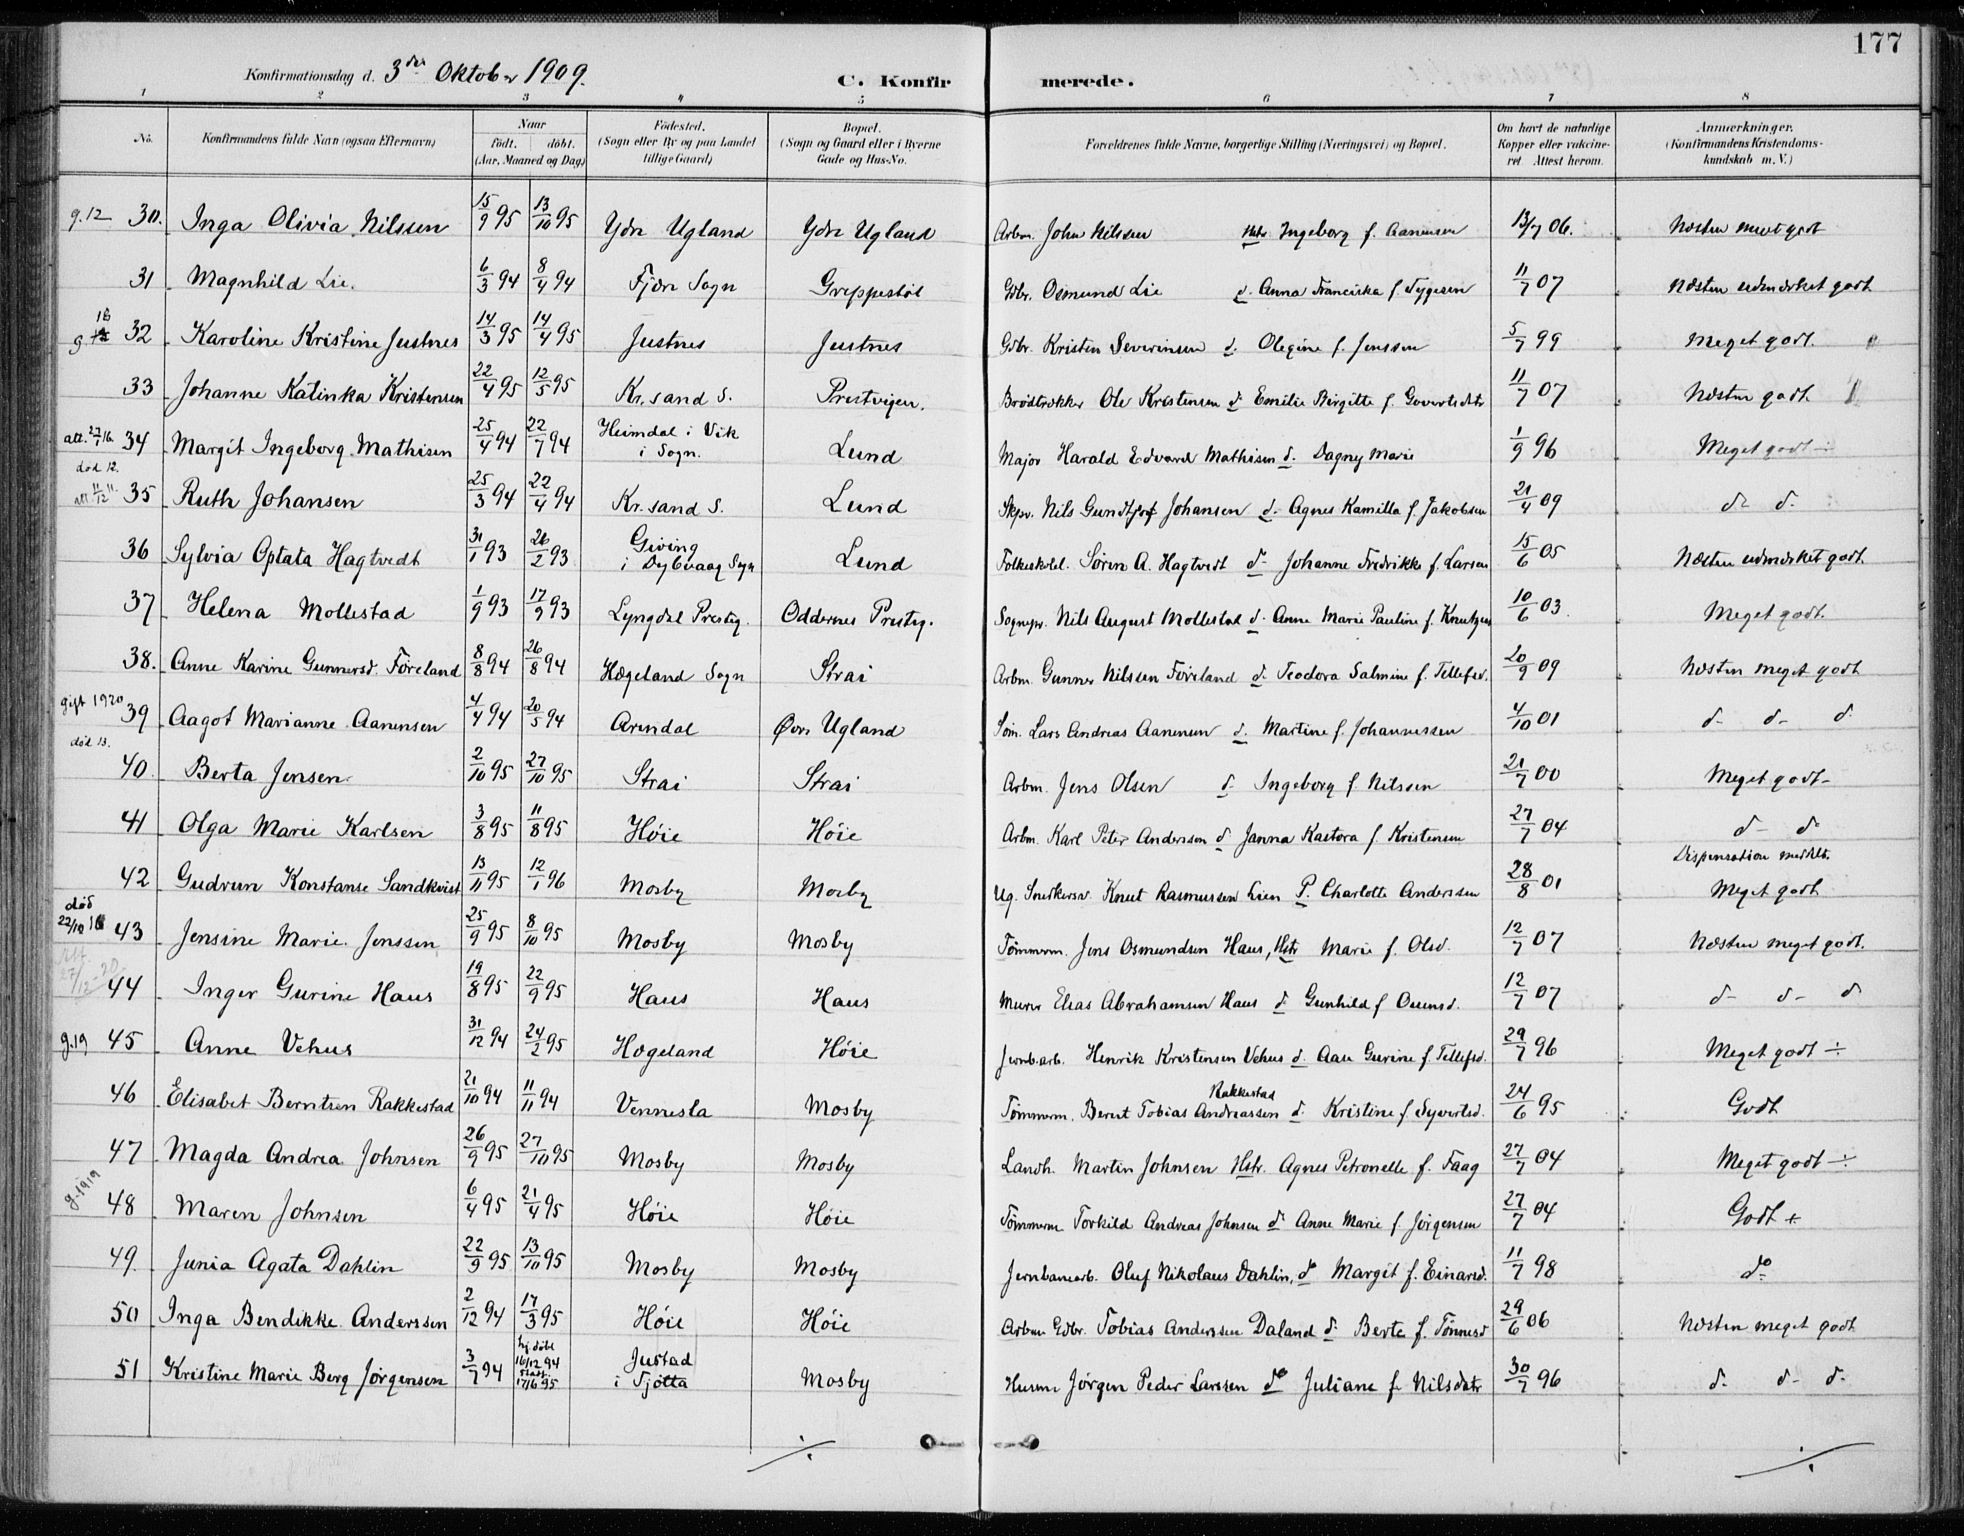 177
Konfirmationsdag d. 3die Oktober 1909. C. Konfirmerede.
1 2 3 4 5 6 7 8
No. Konfirmandens fulde Navn (ogsaa Efternavn) Naar født. døbt. (Aar, Maaned og Dag) Fødested. (Sogn eller By og paa Landet tillige Gaard) Bopæl. (Sogn og Gaard eller i Byerne Gade og Hus-No. Forældrenes fulde Navne, borgerlige Stilling (Næringsvei) og Bopæl. Om havt de naturlige Kopper eller vakcineret. Attest herom. Anmærkninger. (Konfirmandens Kristendomskundskab m. V.)
g. 12 30. Inga Olivia Nilssen 15/9 95 13/10 95 Ydre Ugland Ydre Ugland Arbm. John Nilssen Hstr. Ingeborg f. Aanensen 13/7 06. Næsten meget godt
31 Magnhild Lie. 6/3 94 8/4 94 Fjære Sogn Greppestøl Gdbr. Osmund Lie d. Anna Franciska f. Tygesen 11/7 07 Næsten udmærket godt
g 16 32 Karoline Kristine Justnes 14/3 95 14/4 95 Justnes Justnes Gdbr. Kristen Severinsen d. Olegine f. Jenssen 5/7 99 Meget godt.
33 Johanne Katinka Kristensen 22/4 95 12/5 95 Kr.sand S. Prestvigen. Brødtrækker Ole Kristensen d. Emilie Birgitte f. Govertsdtr 11/7 07 Næsten godt
att. 27/7 16. 34 Margit Ingeborg Mathisen 25/4 94 22/7 94 Heimdal i Vik i Sogn. Lund Major Harald Edvard Mathisen d. Dagny Marie 1/9 96 Meget godt ÷
død 12. att. 11/12 11. 35 Ruth Johansen 25/3 94 22/4 94 Kr.sand S. Lund Skpr. Nils Gundtjof Johansen d. Agnes Kamilla f. Jakobsen 21/4 09 d- d-
36 Sylvia Optata Hagtvedt 31/1 93 26/2 93 Giving i Dybvaag Sogn Lund Folkeskolel. Søren A. Hagtvedt d- Johanne Fredrikke f. Larsen 15/6 05 Næsten udmærket godt.
37 Helena Mollestad 1/9 93 17/9 93 Lyngdal Prestg. Oddernes Prestg. Sognepr. Nils August Mollestad d. Anne Marie Pauline f. Knutzen 10/6 03. Meget godt.
38. Anne Karine Gunnersd. Føreland 8/8 94 26/8 94 Hægeland Sogn Strai Arbm. Gunner Nilssen Føreland d. Teodora Salmine f. Tellefsd. 20/9 09 Næsten meget godt
gift 1920 39 Aagot Marianne Aanensen 4/4 94 20/5 94 Arendal Øvre Ugland Søm. Lars Andreas Aanensen d. Martine f. Johannessen 4/10 01 d- d- d-
død 13. 40. Berta Jensen. 2/10 95 27/10 95 Strai Strai Arbm. Jens Olsen d. Ingeborg f. Nilssen 21/7 00 Meget godt-
41 Olga Marie Karlsen 3/8 95 11/8 95 Høie Høie Arbm. Karl Peter Anderssen d. Janna Kastora f. Kristensen 27/7 04 d- d-
42 Gudrun Konstanse Sandkvist 13/11 95 12/1 96 Mosby Mosby Ug. Snedkersv. Knut Rasmussen Lien P. Charlotte Anderssen 28/8 01 Dispensation meddelt. Meget godt
død 22/10 16 43 Jensine Marie Jenssen 25/9 95 8/10 95 Mosby Mosby Tømmerm. Jens Osmundsen Haus, Hstr Marie f. Olsd. 12/7 07 Næsten meget godt.
Att. 27/12-20 44 Inger Gurine Haus 19/8 95 22/9 95 Haus Haus Murer Elias Abrahamsen Haus d. Gunhild f. Ouensd. 12/7 07 d- d- d
g. 19 45 Anne Vehus 31/12 94 24/2 95 Hægeland Høie Jernb.arb. Henrik Kristensen Vehus d. Aase Gurine f. Tellefsd. 29/7 96 Meget godt ÷
46 Elisabet Berntsen Rakkestad 21/10 94 11/11 94 Vennesla Mosby Tømmerm. Bernt Tobias Andreassen Rakkestad d. Kristine f. Syvertsd. 24/6 95 Godt
47 Magda Andrea Johnsen 26/9 95 27/10 95 Mosby Mosby Landh. Martin Johnsen Hstr. Agnes Petronelle f. Faag 27/7 04 Meget godt ÷
g. 1919 48 Maren Johnsen 6/4 95 21/4 95 Høie Høie Tømmerm Torkild Andreas Johnsen d. Anne Marie f. Jørgensen 27/7 04 Godt +
49. Junia Agata Dahlin 22/9 95 13/10 95 Mosby Mosby Jernbanearb. Oluf Nikolaus Dahlin, do Margit f. Einarsd. 11/7 98 do
50 Inga Bendikke Anderssen 2/12 94 17/3 95 Høie Høie Arbm Gdbr. Tobias Anderssen Daland d. Berte f. Tønnesd 29/6 06 Næsten meget godt
51 Kristine Marie Berg Jørgensen 3/7 94 hj.døbt 16/12 94 stadf. 17/6 95 Justad i Tjøtta Mosby Husm Jørgen Peder Larssen do Juliane f. Nilsdatr 30/7 96 d- d- d-